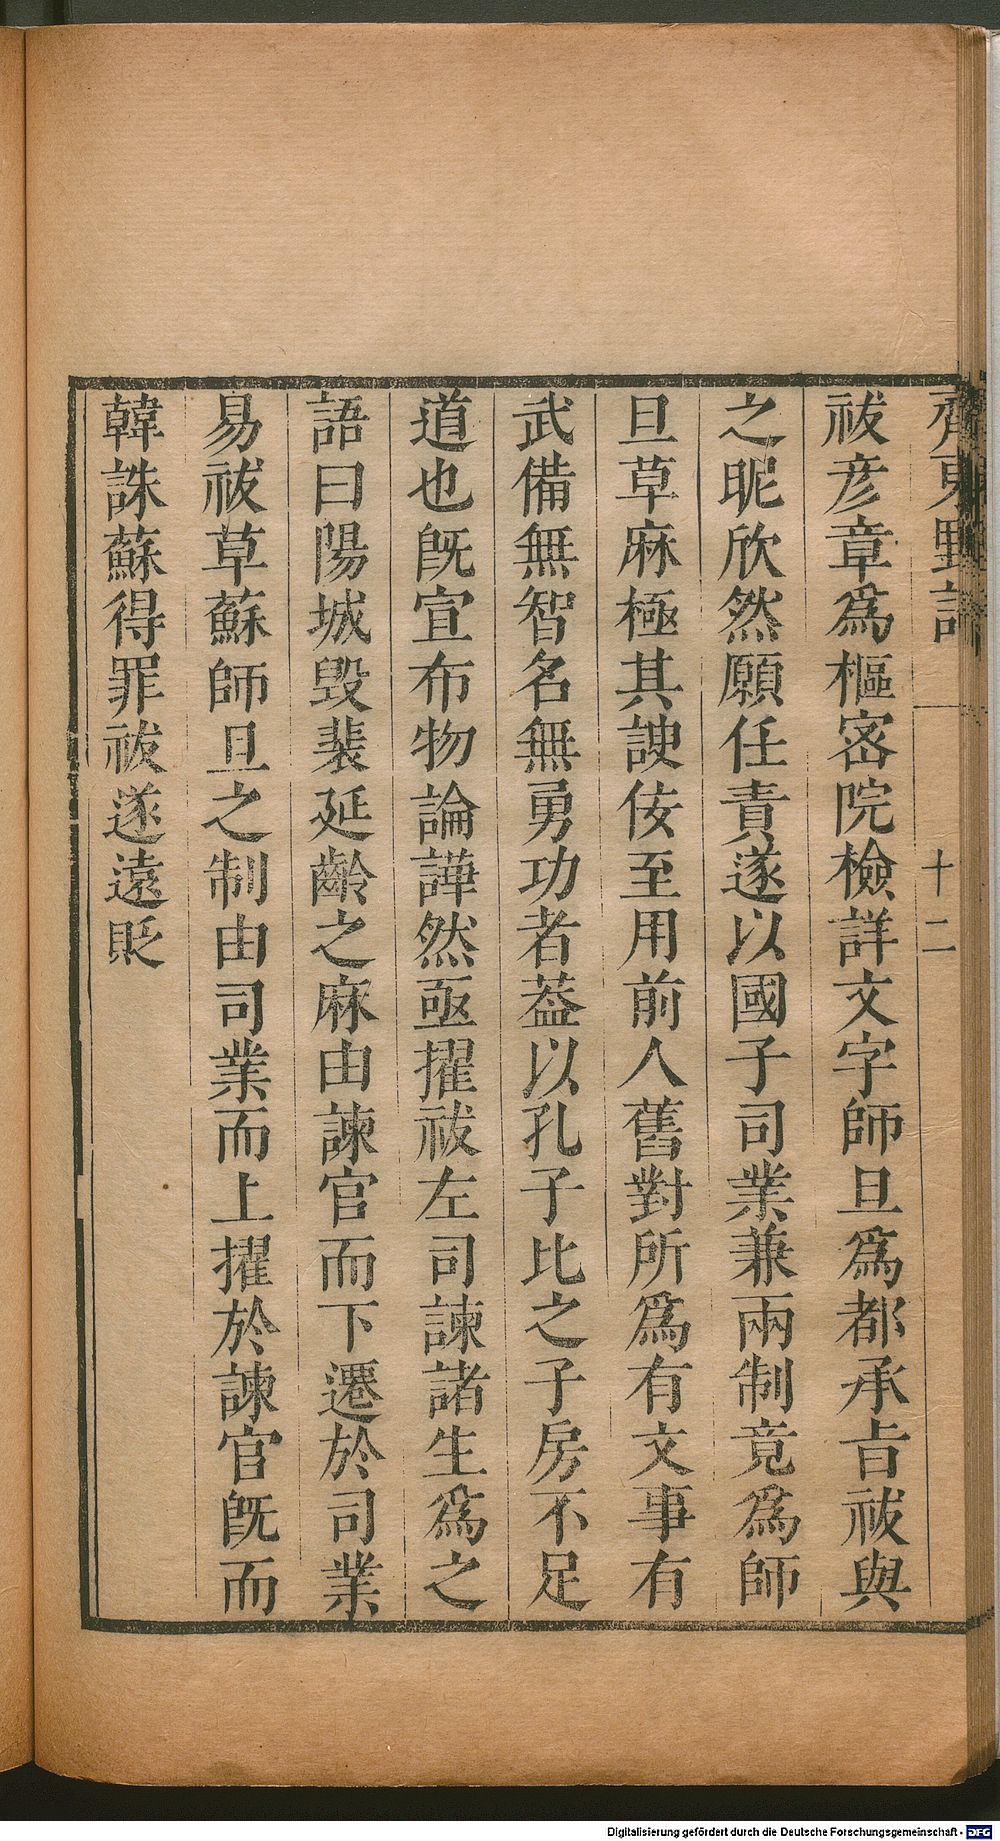 齊東野語
十二
祓彦章爲樞宻院檢詳文字師旦爲都承㫖祓與
之昵欣然願任責遂以國子司業兼兩制竟爲師
旦草麻極其諛佞至用前人舊對所爲有文事有
武備無智名無勇功者葢以孔子比之子房不足
道也旣宣布物論譁然亟擢祓左司諫諸生爲之
語曰陽城毀裴延齡之麻由諫官而下遷於司業
易祓草蘇師旦之制由司業而上擢於諫官旣而
韓誅蘇得罪祓遂遠貶
Digitalisierung gefördert durch die Deutsche Forschungsgemeinschaft - DFG